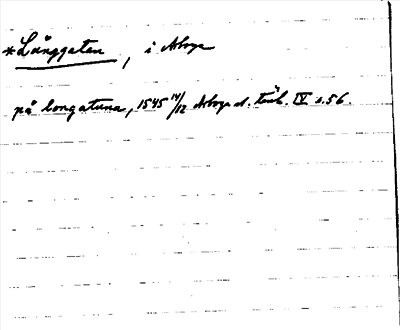 *Långgatan, i Arboga
på longatuna, 1545 14/12 Arboga st. tänkb. IV s. 56.